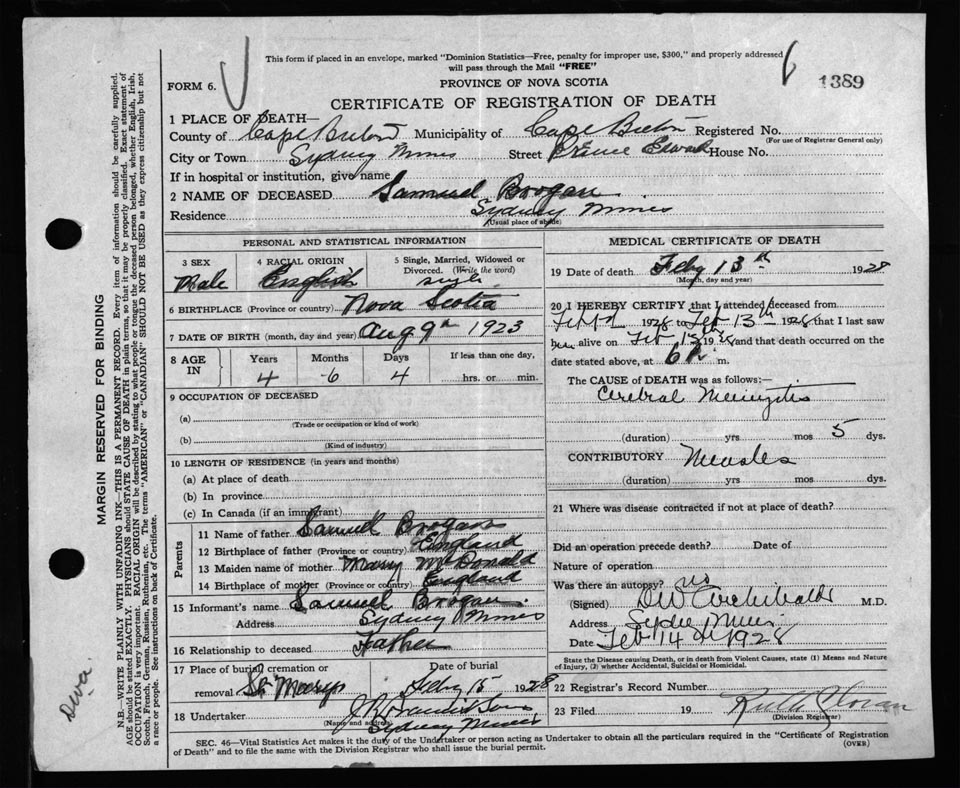 This form if placed in an envelope, marked "Dominion Statistics—Free, penalty for improper use, $300," and properly addressed
will pass through the Mail "FREE"
FORM 6.
PROVINCE OF NOVA SCOTIA
1389
CERTIFICATE OF REGISTRATION OF DEATH
1 PLACE OF DEATH—
County of Cape Breton Municipality of Cape Breton Registered No.
(For use of Registrar General only)
City or Town Sydney Mines Street Prince Edward House No.
If in hospital or institution, give name
2 NAME OF DECEASED Samuel Brogan
Residence Sydney Mines
(Usual place of abode)
PERSONAL AND STATISTICAL INFORMATION
3 SEX 4 RACIAL ORIGIN 5 Single, Married, Widowed or Divorced. (Write the word)
Male English single
6 BIRTHPLACE (Province or country) Nova Scotia
7 DATE OF BIRTH (month, day and year) Aug 9th 1923
8 AGE IN Years Months Days If less than one day,
4 6 4 hrs. or min.
9 OCCUPATION OF DECEASED
(a)
(Trade or occupation or kind of work)
(b)
(Kind of industry)
10 LENGTH OF RESIDENCE (in years and months)
(a) At place of death
(b) In province
(c) In Canada (if an immigrant)
Parents
11 Name of father Samuel Brogan
12 Birthplace of father (Province or country) England
13 Maiden name of mother Mary McDonald
14 Birthplace of mother (Province or country) England
15 Informant's name Samuel Brogan.
Address Sydney Mines
16 Relationship to deceased Father
17 Place of burial, cremation or Date of burial
removal Feby 15 1928
18 Undertaker
(Name and address)
Sydney Mines
MEDICAL CERTIFICATE OF DEATH
19 Date of death Feby 13th 1928
(Month, day and year)
20 I HEREBY CERTIFY that I attended deceased from
1928 to Feb 13th 1928 that I last saw
him alive on Feb 1928 and that death occurred on the
date stated above, at 6 m.
The CAUSE of DEATH was as follows:—
Cerebral Meningitis
(duration) yrs mos 5 dys.
CONTRIBUTORY Measles
(duration) yrs mos dys.
21 Where was disease contracted if not at place of death?
Did an operation precede death? Date of
Nature of operation
Was there an autopsy? no
(Signed) DW Archibald M.D.
Address
Date Feb 14 1928
State the Disease causing Death, or in death from Violent Causes, state (1) Means and Nature of Injury, (2) whether Accidental, Suicidal or Homicidal.
22 Registrar's Record Number
23 Filed 19
(Division Registrar)
SEC. 46—Vital Statistics Act makes it the duty of the Undertaker or person acting as Undertaker to obtain all the particulars required in the "Certificate of Registration
of Death" and to file the same with the Division Registrar who shall issue the burial permit. (OVER)
MARGIN RESERVED FOR BINDING
N.B.—WRITE PLAINLY WITH UNFADING INK—THIS IS A PERMANENT RECORD. Every item of information should be carefully supplied.
AGE should be stated EXACTLY. PHYSICIANS should STATE CAUSE OF DEATH in plain terms, so that it may be properly classified. Exact statement of
OCCUPATION is very important. RACIAL ORIGIN will be described by stating to what people or tongue the deceased person belonged, whether English, Irish,
Scotch, French, German, Russian, Ruthenian, etc. The terms "AMERICAN" or "CANADIAN" SHOULD NOT BE USED as they express citizenship but not
a race or people. See instructions on back of Certificate.